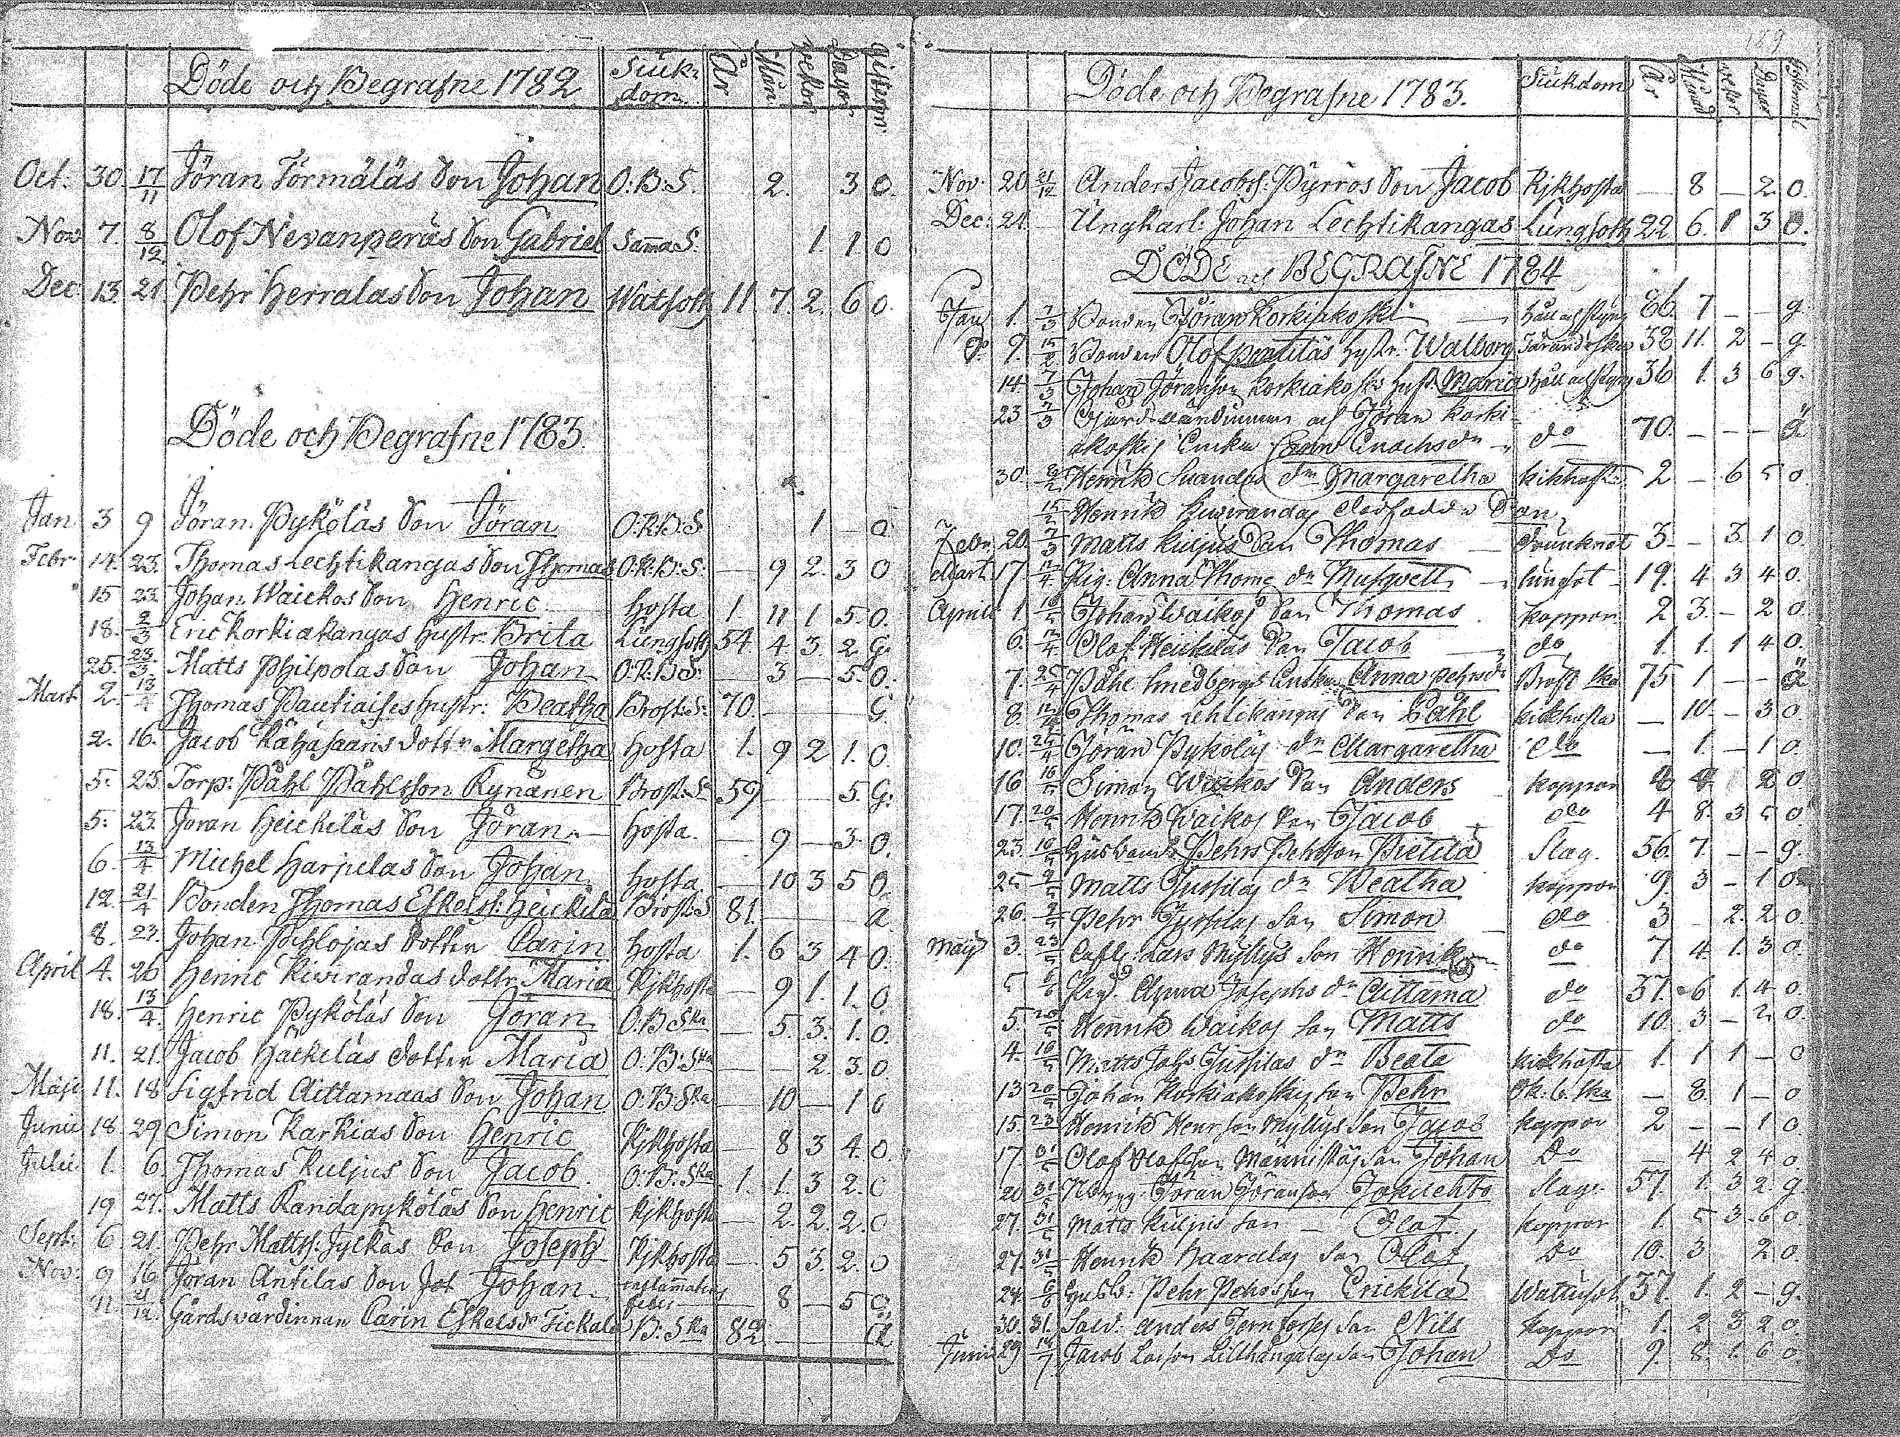 Döde och Begrafne 1782 Siuk-dom. År Mon Vekor Dagar
Oct. 30. 17/11 Jöran Törmäläs Son Johan O:B:S. 2. 3 0.
Nov 7. 8/12. Olof Nevanperäs Son Gabriel Samma S. 1. 1 0
Dec 13. 21 Pehr Herralas Son Johan Watsoth 11 7. 2. 6 0.
Döde och Begrafne 1783.
Jan 3 9 Jöran Pyköläs Son Jöran O:K:B:S 1 — 0
Febr 14. 23. Thomas Lechtikangas Son Thomas O:K:B:S: — 9 2. 3 0
15 23. Johan Waickos Son Henric hosta 1. 11 1 5. 0.
18. 2/3 Eric Korkiakangas hustr. Brita Lungsoth 54 4. 3. 2 G.
25. 23/3 Matts Philpolas Son Johan O:K:B:S: — 3 — 5. 0.
Mart. 2. 13/4 Thomas Pautiaises hustr: Beatha Brost:S: 70. — — — G
2. 16. Jacob Rähäsaaris dottr Margetha hosta 1. 9 2 1. 0
5. 23. Torp: Påhl Påhlsson Rynänen Brost:S 59 — — 5. G:
5. 23. Jöran Heickiläs Son Jöran hosta. — 9 — 3 0.
6. 13/4 Michel Harjulas Son Johan hosta — 10 3 5 0
12. 21/4 Bonden Thomas Eskels: Heickilä Brost:S 81. — — — ä
8. 23. Johan Pohlojas dotter Carin hosta 1. 6 3 4 0.
April 4. 26 Henric Kivirandas dottr. Maria Kjkhosta — 9 1. 1. 0
18. 13/4. Henric Pyköläs Son Jöran O:B Ska — 5. 3. 1. 0.
11. 21. Jacob Häckiläs dotter Maria O:B:Ska — — 2. 3. 0
Maji 11. 18 Sigfrid Aittamaas Son Johan O:B:Ska — 10 — 1 0
Junii 18 29 Simon Karkias Son Henric Kjkhosta — 8 3 4. 0.
Julii 1. 6. Thomas Kuljus Son Jacob O:B:Ska 1. 1. 3 2. 0
19 27. Matts Randapyköläs Son Henric Kjkhosta — 2. 2. 2. 0
Sept: 6 21. Pehr Matts: Jylkäs Son Joseph Kjkhosta — 5 3. 2. 0
Nov: 9 16 Jöran Antilas Son Johan inflammatius febris — 8 — 5 0.
11. 21/12. Gårdsvärdinnan Carin Eskelsdr B:Ska 82 — — —
Döde och Begrafne 1783. Siukdom År Månad vekor Dagar
Nov. 20. 21/12 Anders Jacobs: Pyrrös Son Jacob Kjkhosta — 8 — 2. 0.
Dec: 24. Ungkarl: Johan Lechtikangas Lungsoth 22 6. 1 3 0.
DÖDE och BEGRAFNE 1784
Jan 1. 7/3 Bonden Jöran Korkiakoski håll och styng 86. 7 — — g.
do 9. 15/2 Bonden Olof Pentiläs hustr. Walborg 38 11. 2 — g.
14. 7/3 Johan Jöransson Korkiakoski hust. Maria håll och styng 36 1. 3 6 g.
23 7/3 Gårdvärdinnan och Jöran Korki-
akoskis Enka Carin Enochsdr do 70. — — — ä
30. Henrik Suandas dr Margaretha kikhosta 2 — 6 5 0
15/2 Henrik Kivirandas dödfödde Son
Febr. 20. 7/3 Matts Kuljus Son Thomas 3 — 3. 1 0.
Mart. 17. 12/4 Pig: Anna Thome dr lungsot 19. 4 3 4 0.
April 1. Johan Waikos Son Thomas koppor 2 3. — 2 0
6. 12/4 Olof Heickiläs Son Jacob do 1. 1. 1 4 0.
7. 25/4 Påhl Smedbergs Enka Anna Pehrsdr Bröst ska 75 1 — — ä
8. Thomas Lehtikangas Son Påhl kikhosta — 10. — 3 0.
10. Jöran Pyköläs dr Margaretha do — 1. — 1 0.
16 Simon Waikos Son Anders koppor 4 4. 2 0
17. Henrik Waikos Son Jacob do 4 8. 3 5 0
23. Husbond Pehrs Pehrsson Pietilä Slag. 56. 7. — — g.
25 Matts Jussilas dr Beatha koppor 9. 3 — 1 0
26. Pehr Jussilas Son Simon do 3 2. 2 0.
Maij 3. 23/5 Lars Myllys Son Henrik do 7 4. 1. 3 0
5 Pig. Anna Josephs dr Aittama do 37. 6 1. 4 0.
5. Henrik Waikos Son Matts do 10. 3 — 2 0.
4. Matts Jussilas dr Beata kikhosta 1. 1 1 — 0
13 20/5 Johan Korkiakoskis son Pehr Ok: b. ska — 8. 1 — 0
15. 23 Henrik Henrsson Myllys Son Jacob koppor 2 — — 1 0.
17. Olof Olofsson Männistös Son Johan Do — 4 2 4 0.
20 31/5 Jöran Jöransson Slag. 57. 1. 3 2. g.
27. 31/5 Matts Kuljus Son — Olof koppor 1. 5 3. 6 0.
27. 31/5 Henrik Haaralas Son Olof Do 10. 3 2 0.
24. 6/6 Pehr Pehrsson Erickilä Wattusot 37. 1. 2 — g.
30. 31. Anders Son Nils koppor 1. 2 3 2 0.
Junii 29 Jacob Larsson Lillhangalas Son Johan Do 9. 8. 1. 6 0.